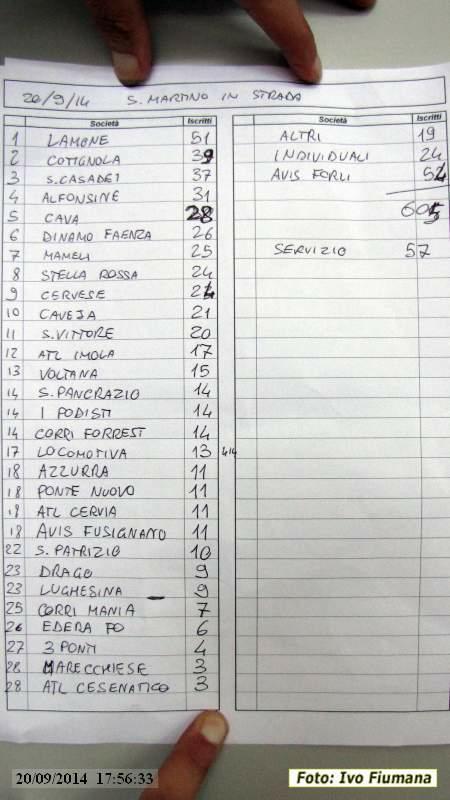 20/9/14 S. MARTINO IN STRADA
Società Iscritti
1 LAMONE 51
2 COTIGNOLA 39
3 S.CASADEI 37
4 ALFONSINE 31
5 CAVA 28
6 DINAMO FAENZA 26
7 MAMELI 25
8 STELLA ROSSA 24
9 CERVESE
10 CAVEJA 21
11 S.VITTORE 20
12 ATL IMOLA 17
13 VOLTANA 15
14 S. PANCRAZIO 14
14 I PODISTI 14
14 CORRI FORREST 14
17 LOCOMOTIVA 13 414
18 AZZURRA 11
18 PONTE NUOVO 11
18 ATL CERVIA 11
18 AVIS FUSIGNANO 11
22 S. PATRIZIO 10
23 DRAGO 9
23 LUGHESINA 9
25 CORRI MANIA 7
26 EDERA FO 6
27 3 PONTI 4
28 MARECCHIESE 3
28 ATL CESENATICO 3
Società Iscritti
ALTRI 19
INDIVIDUALI 24
AVIS FORLI
SERVIZIO 57
20/09/2014 17:56:33
Foto: Ivo Fiumana